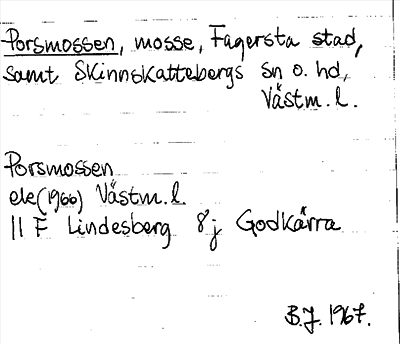 Porsmossen, mosse, Fagersta stad,
samt Skinnskattebergs sn o. hd,
Västm. l.
Porsmossen
ek (1966) Västm. l.
11 F Lindesberg 8 j Godkärra
B.J. 1967.